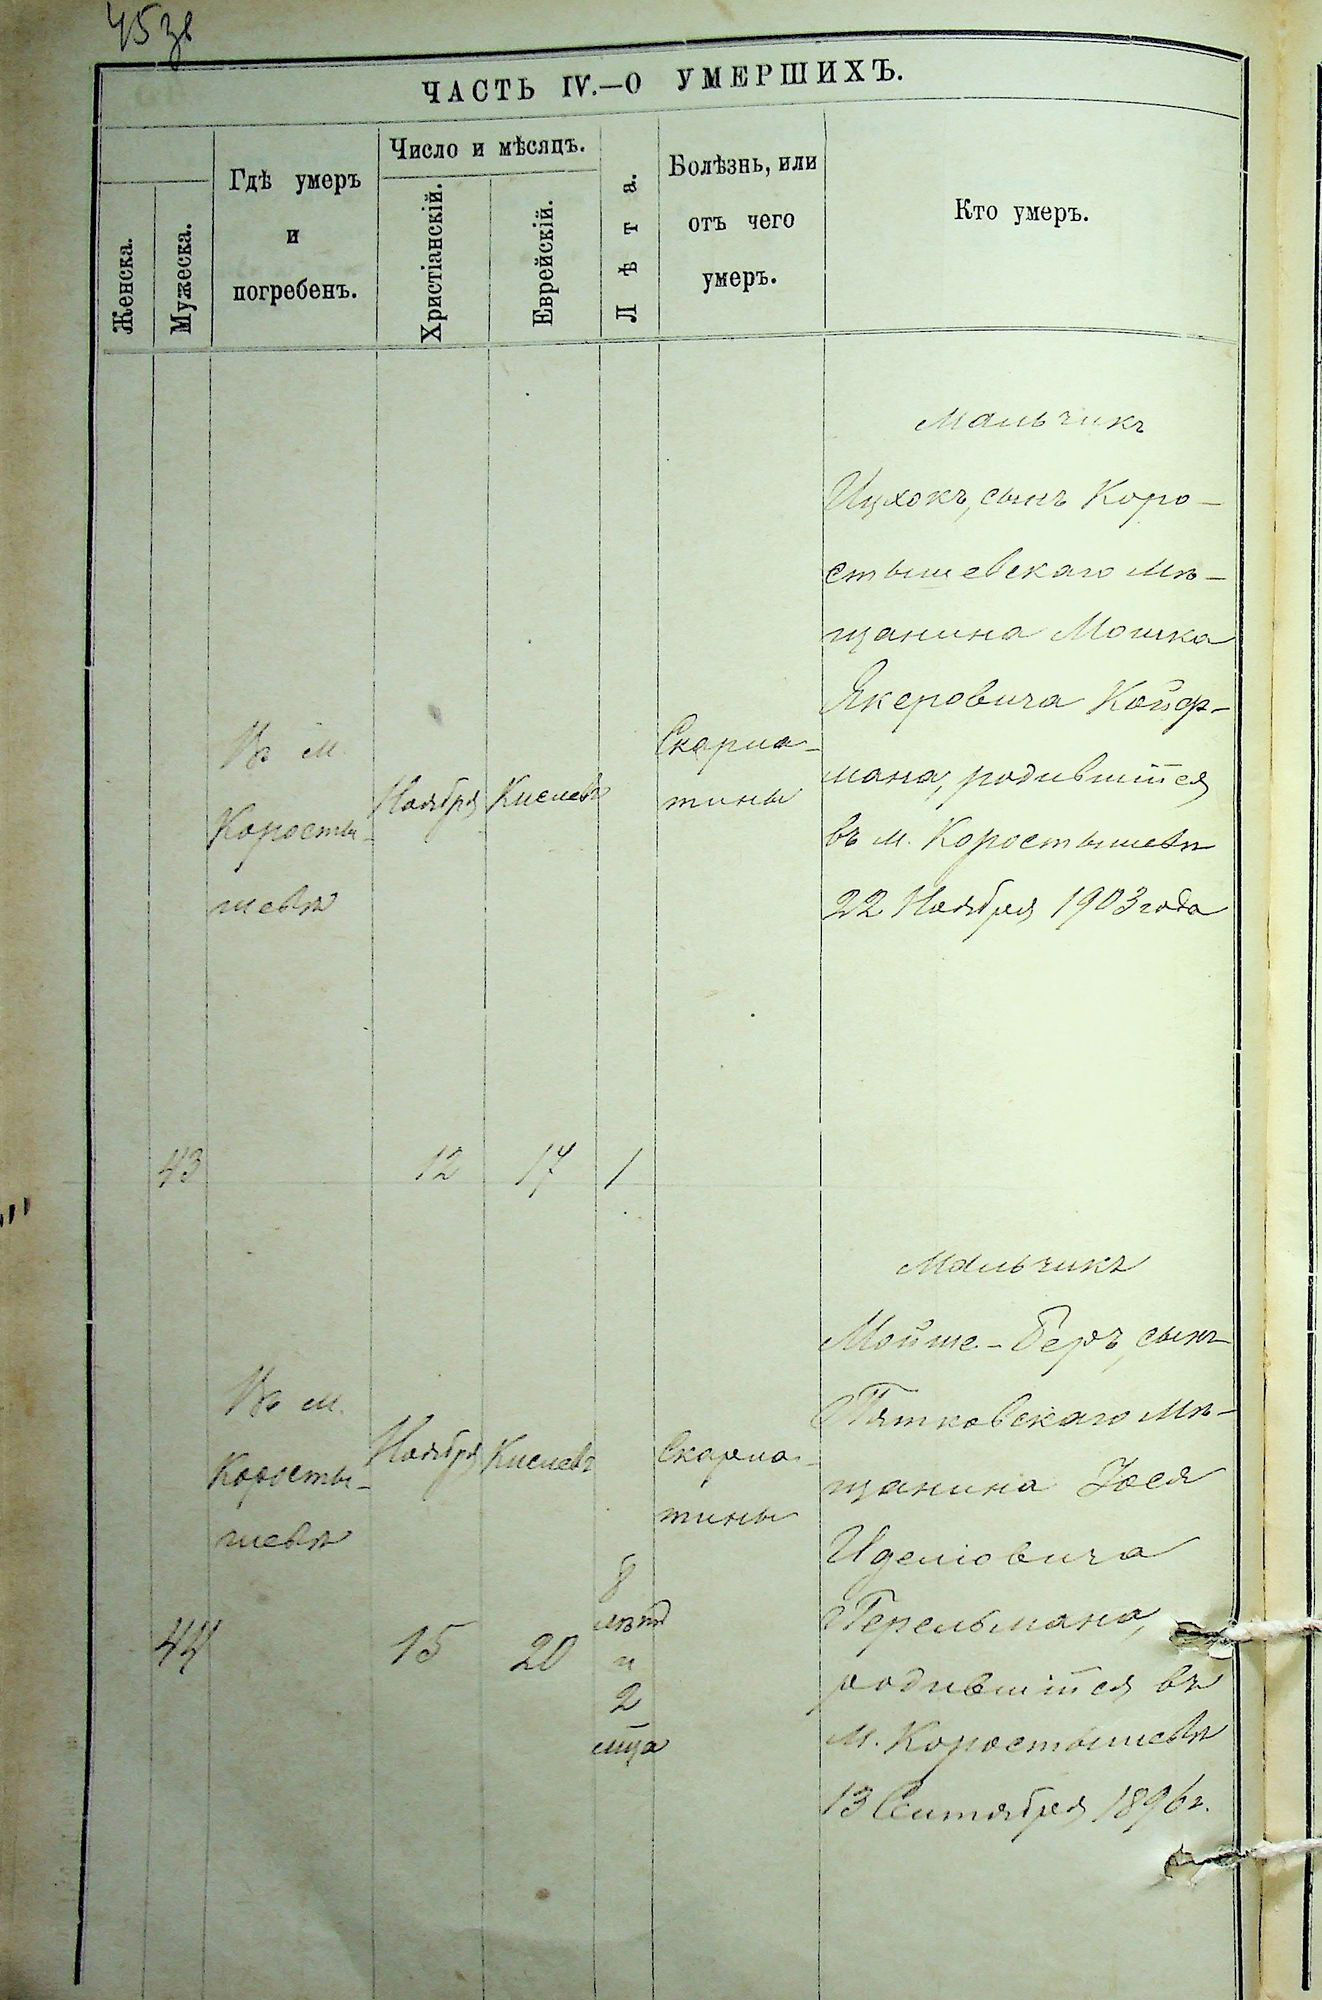 45 зв
ЧАСТЬ IV.—О УМЕРШИХЪ.
Женска.
Мужеска.
Гдѣ умеръ
и
погребенъ.
Число и мѣсяцъ.
Христіанскій.
Еврейскій.
Лѣта.
Болѣзнь, или
отъ чего
умеръ.
Кто умеръ.
43
Въ м.
Коросты-
шевѣ
Ноября
12
Кислевъ
17
1
Скарла-
тины
Мальчикъ
Ицхокъ, сынъ Коро-
стышевскаго мѣ-
щанина Мошка
Якеровича Койф-
мана, родившійся
въ м. Коростышевѣ
22 Ноября 1903 года
44
Въ м.
Коросты-
шевѣ
Ноября
15
Кислевъ
20
8
лѣтъ
и
2
мца
Скарла-
тины
Мальчикъ
Мойше-Беръ, сынъ
Пятковскаго мѣ-
щанина Іося
Иделіовича
Перельмана,
родившійся въ
м. Коростышевѣ
13 Сентября 1896 г.